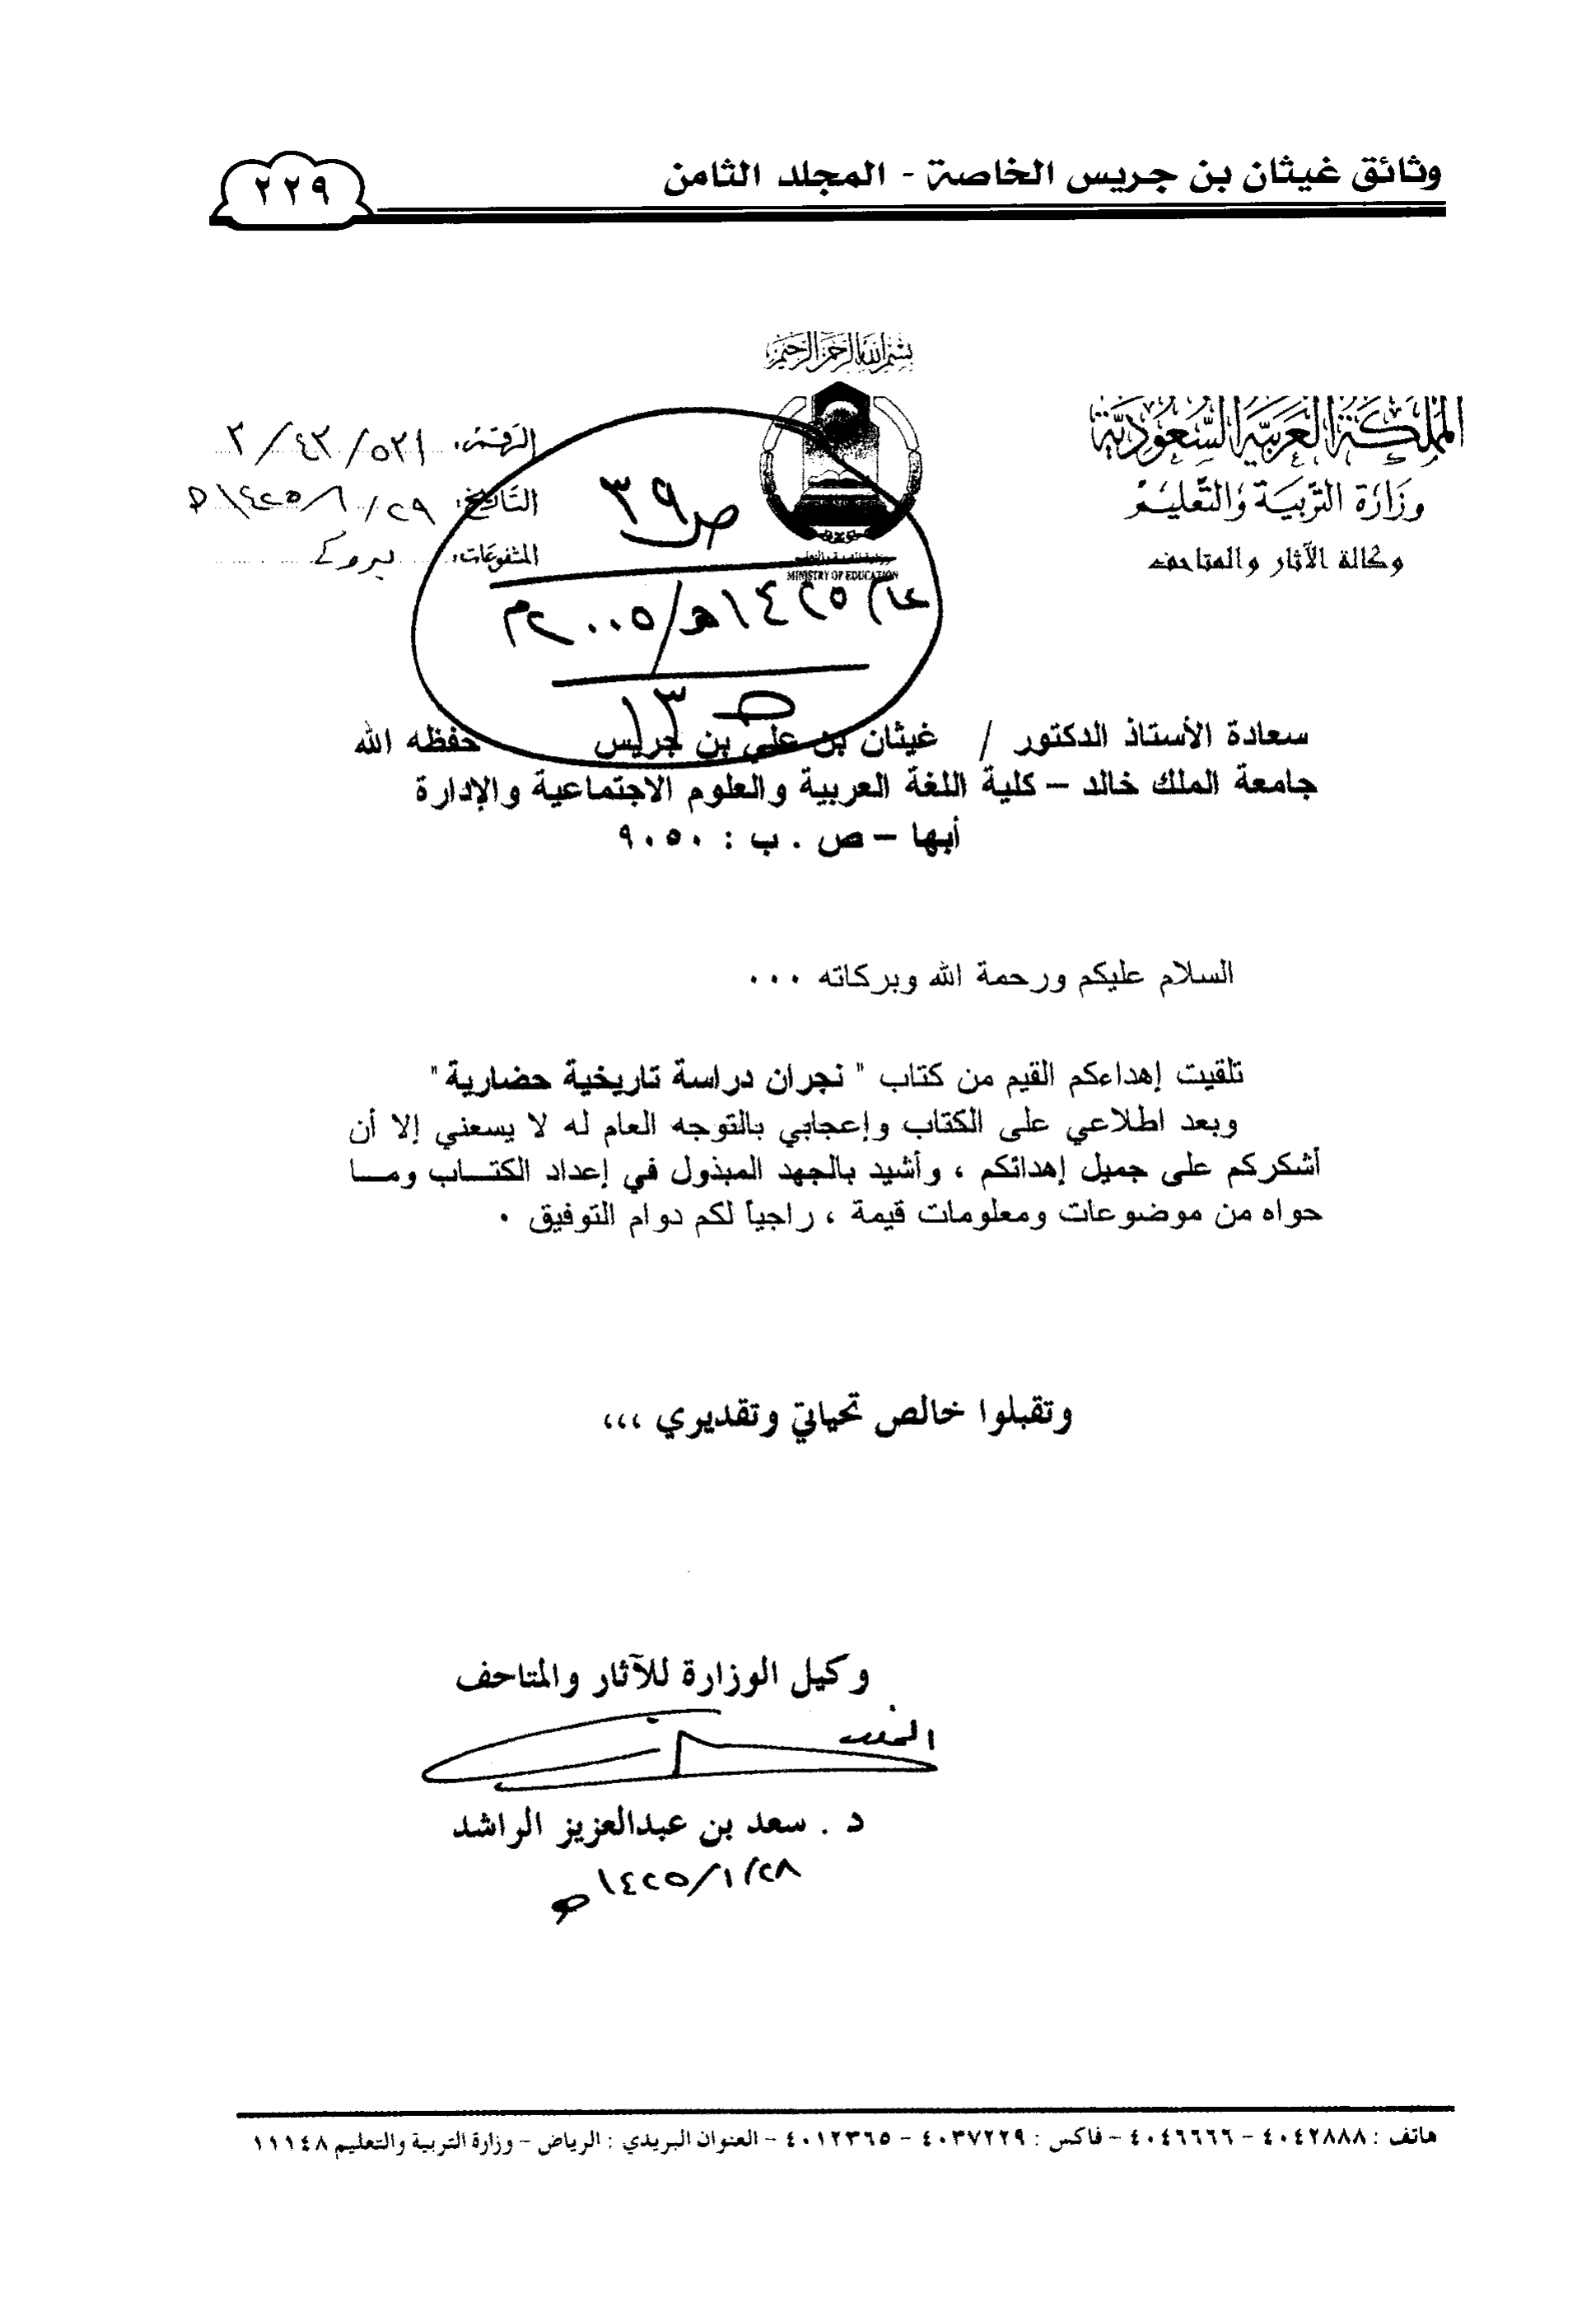 وثائق غيثان بن جريس الخاصة - المجلد الثامن
٢٢٩
بسم الله الرحمن الرحيم
المملكة العربية السعودية
وزارة التربية والتعليم
وكالة الآثار والمتاحف
MINISTRY OF EDUCATION
الرقم: ٢/٤٣/٥٢١
التاريخ: ٢٩/١/١٤٢٥هـ
المشفوعات:
ص٣٩
١٤٢٥هـ/٢٠٠٥م
١٣
سعادة الأستاذ الدكتور / غيثان بن علي بن جريس حفظه الله
جامعة الملك خالد – كلية اللغة العربية والعلوم الاجتماعية والإدارة
أبها – ص . ب : ٩٠٥٠
السلام عليكم ورحمة الله وبركاته ...
تلقيت إهداءكم القيم من كتاب " نجران دراسة تاريخية حضارية"
وبعد اطلاعي على الكتاب وإعجابي بالتوجه العام له لا يسعني إلا أن
أشكركم على جميل إهدائكم ، وأشيد بالجهد المبذول في إعداد الكتـــاب ومـــا
حواه من موضوعات ومعلومات قيمة ، راجياً لكم دوام التوفيق .
وتقبلوا خالص تحياتي وتقديري ،،،
وكيل الوزارة للآثار والمتاحف
د . سعد بن عبدالعزيز الراشد
٢٨/١/١٤٢٥هـ
هاتف : ٤٠٤٢٨٨٨ – ٤٠٤٦٦٦٦ – فاكس : ٤٠٣٧٢٢٩ – ٤٠١٢٣٦٥ – العنوان البريدي : الرياض – وزارة التربية والتعليم ١١١٤٨